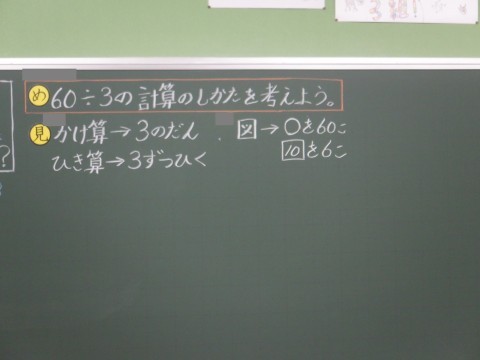 め 60÷3の計算のしかたを考えよう。
見 かけ算→3のだん
ひき算→3ずつひく
図→○を60こ
10を6こ
?